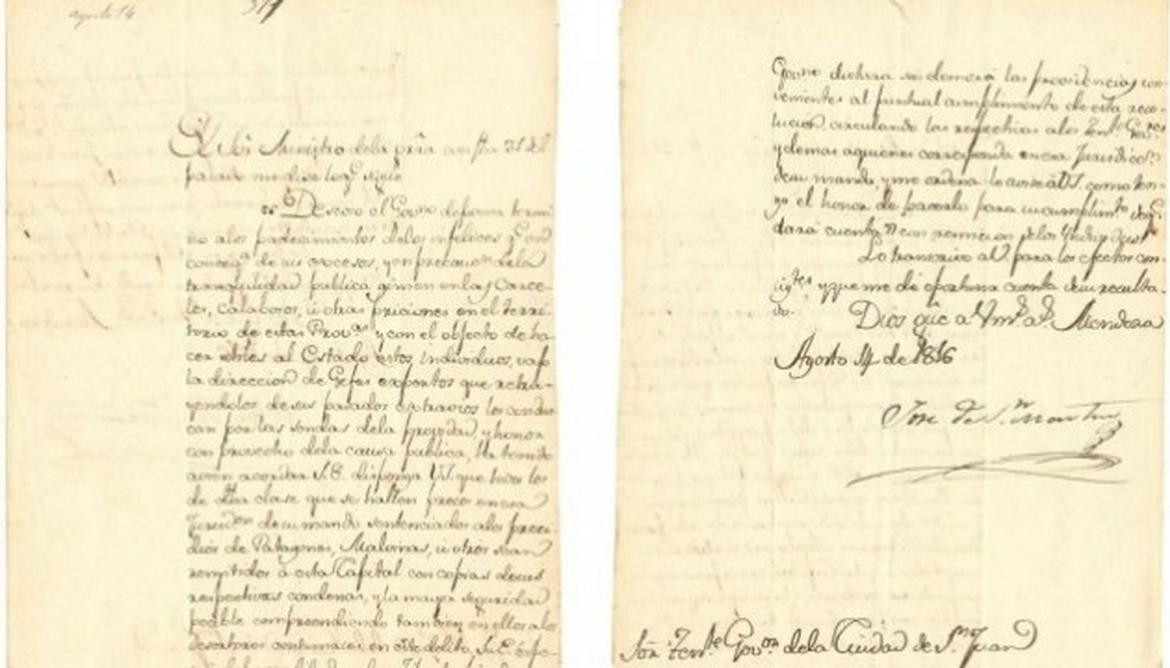 agosto 14
El Sōr Ministro dela grra con fha 31 del
pasado me dice lo qe sigue
Deseoso el Govno de poner termi
no alos padecimientos delos infelices qe en
conseqa de sus excesos, y en precaucn dela
tranquilidad publica gimen en las Carce-
les, calabosos, ù otras priciones en el terri-
torio de estas Provas y con el objeto de ha-
cer utiles al Estado estos individuos, vajo
la direccion de Gefes expertos que retra-
yendolos de sus pasados extravios los condus-
can por las sendas dela providad, y honor
con provecho dela causa publica, Ha tenido
à vien acordar S.E. disponga VS. que todos los
de dha clase que se hallen presos en esa
Jurisdon de su mando sentenciados alos presi-
dios de Patagones, Malvinas, ù otros sean
remitidos à esta Capital con copias de sus
respectivas condenas, y la mayor seguridad
posible comprendiendo tambien en ellos alos
desertores contumaces en este delito. Su E.
Govno dictara sin demora las providencias con-
venientes al puntual cumplimiento de esta reso-
lucion, circulando las respectivas alos Tents Govres
y demas aquienes corresponda en esa Jurisdicn
de su mando, y me ordena lo avise àVS. como ten-
go el honor de hacerlo para su cumplimto
dará cuenta con remision delos Individuos
Lo transcrivo aV. para los efectos con-
sigtes y que me dè oportuna cuenta de su resulta-
do.
Dios gūe a V. ms as. Mendoza
Agosto 14 de 1816
Jose de Sn Martin
Sōr Tente Govor dela Ciudad de Sn Juan